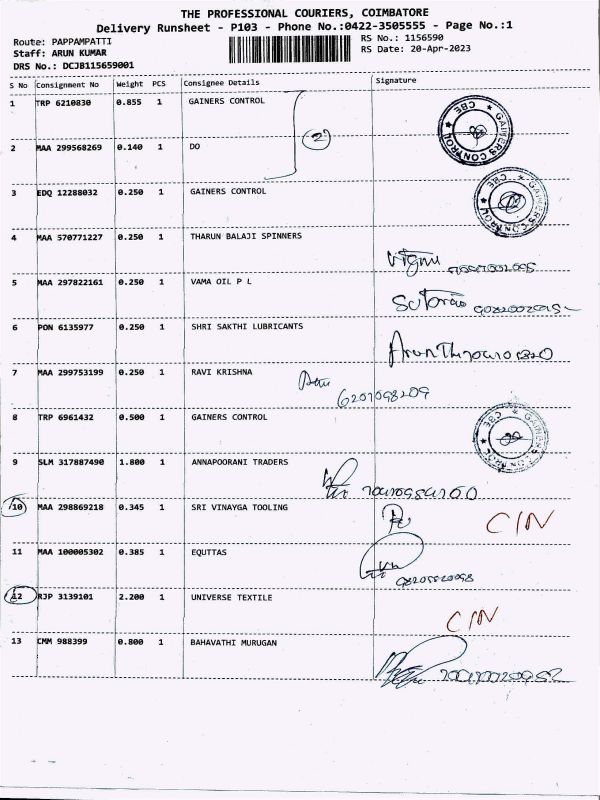 THE PROFESSIONAL COURIERS, COIMBATORE
Delivery Runsheet - P103 - Phone No.:0422-3505555 - Page No.:1
Route: PAPPAMPATTI
Staff: ARUN KUMAR
DRS No.: DCJB115659001
RS No.: 1156590
RS Date: 20-Apr-2023
S No Consignment No Weight PCS Consignee Details Signature
1 TRP 6210830 0.855 1 GAINERS CONTROL
GAINERS CONTROL CBE
2
2 MAA 299568269 0.140 1 DO
3 EDQ 12288032 0.250 1 GAINERS CONTROL
GAINERS CONTROL CBE
4 MAA 570771227 0.250 1 THARUN BALAJI SPINNERS
5 MAA 297822161 0.250 1 VAMA OIL P L
6 PON 6135977 0.250 1 SHRI SAKTHI LUBRICANTS
7 MAA 299753199 0.250 1 RAVI KRISHNA
6207098209
8 TRP 6961432 0.500 1 GAINERS CONTROL
GAINERS CONTROL CBE
9 SLM 317887490 1.800 1 ANNAPOORANI TRADERS
10 MAA 298869218 0.345 1 SRI VINAYGA TOOLING
CIN
11 MAA 100005302 0.385 1 EQUTTAS
12 RJP 3139101 2.200 1 UNIVERSE TEXTILE
CIN
13 CMM 988399 0.800 1 BAHAVATHI MURUGAN